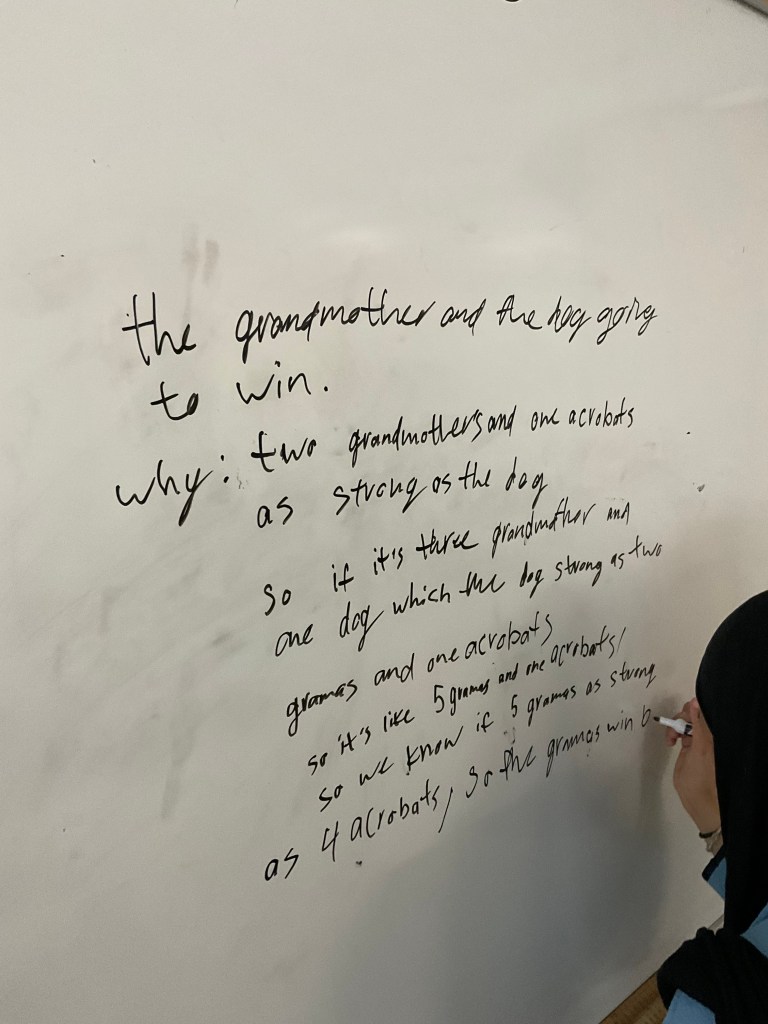 the grandmother and the dog going
to win.
why: two grandmothers and one acrobats
as strong as the dog
so if it's three grandmother and
one dog which the dog strong as two
gramas and one acrobats
so it's like 5 gramas and one acrobats/
so we know if 5 gramas as strong
as 4 acrobats, so the gramas win b